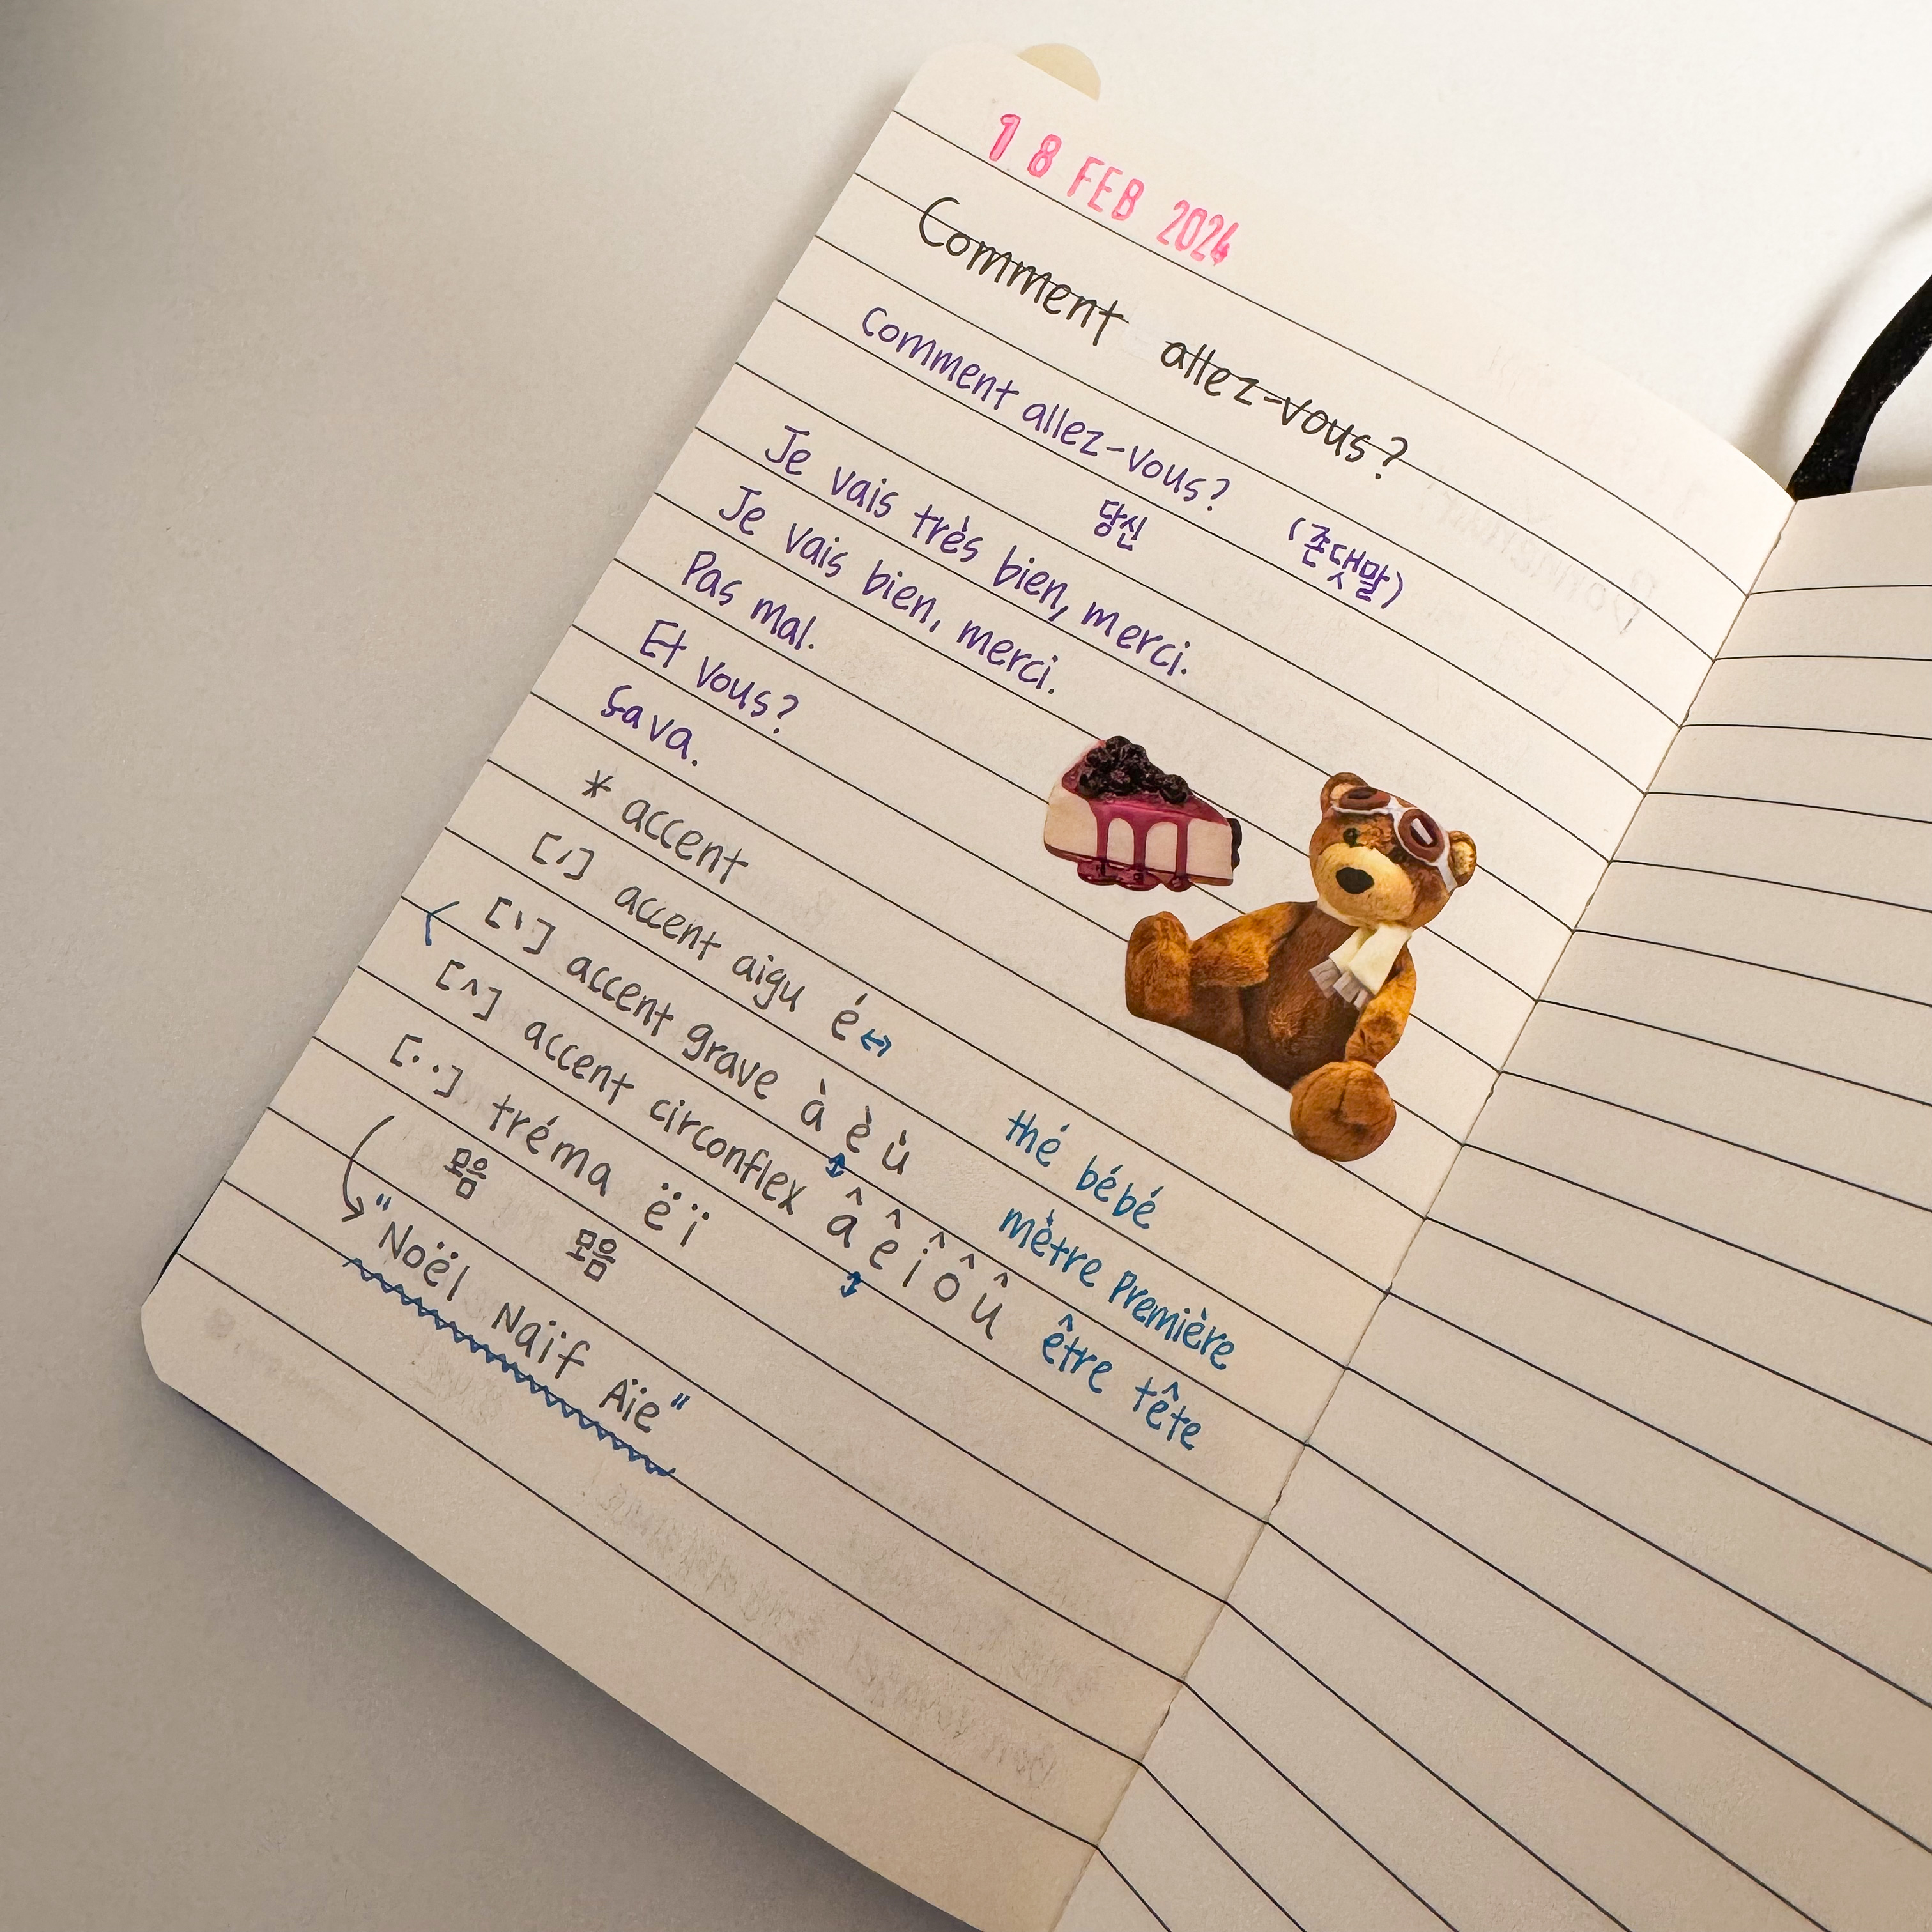 18 FEB 2024
Comment allez-vous?
Comment allez-vous?
당신 (존댓말)
Je vais très bien, merci.
Je vais bien, merci.
Pas mal.
Et vous?
Ça va.
* accent
[´] accent aigu é ↔ thé bébé
[`] accent grave à è ù mètre Première
[^] accent circonflex â ê î ô û être tête
[··] tréma ë ï
모음 모음
"Noël Naïf Aïe"